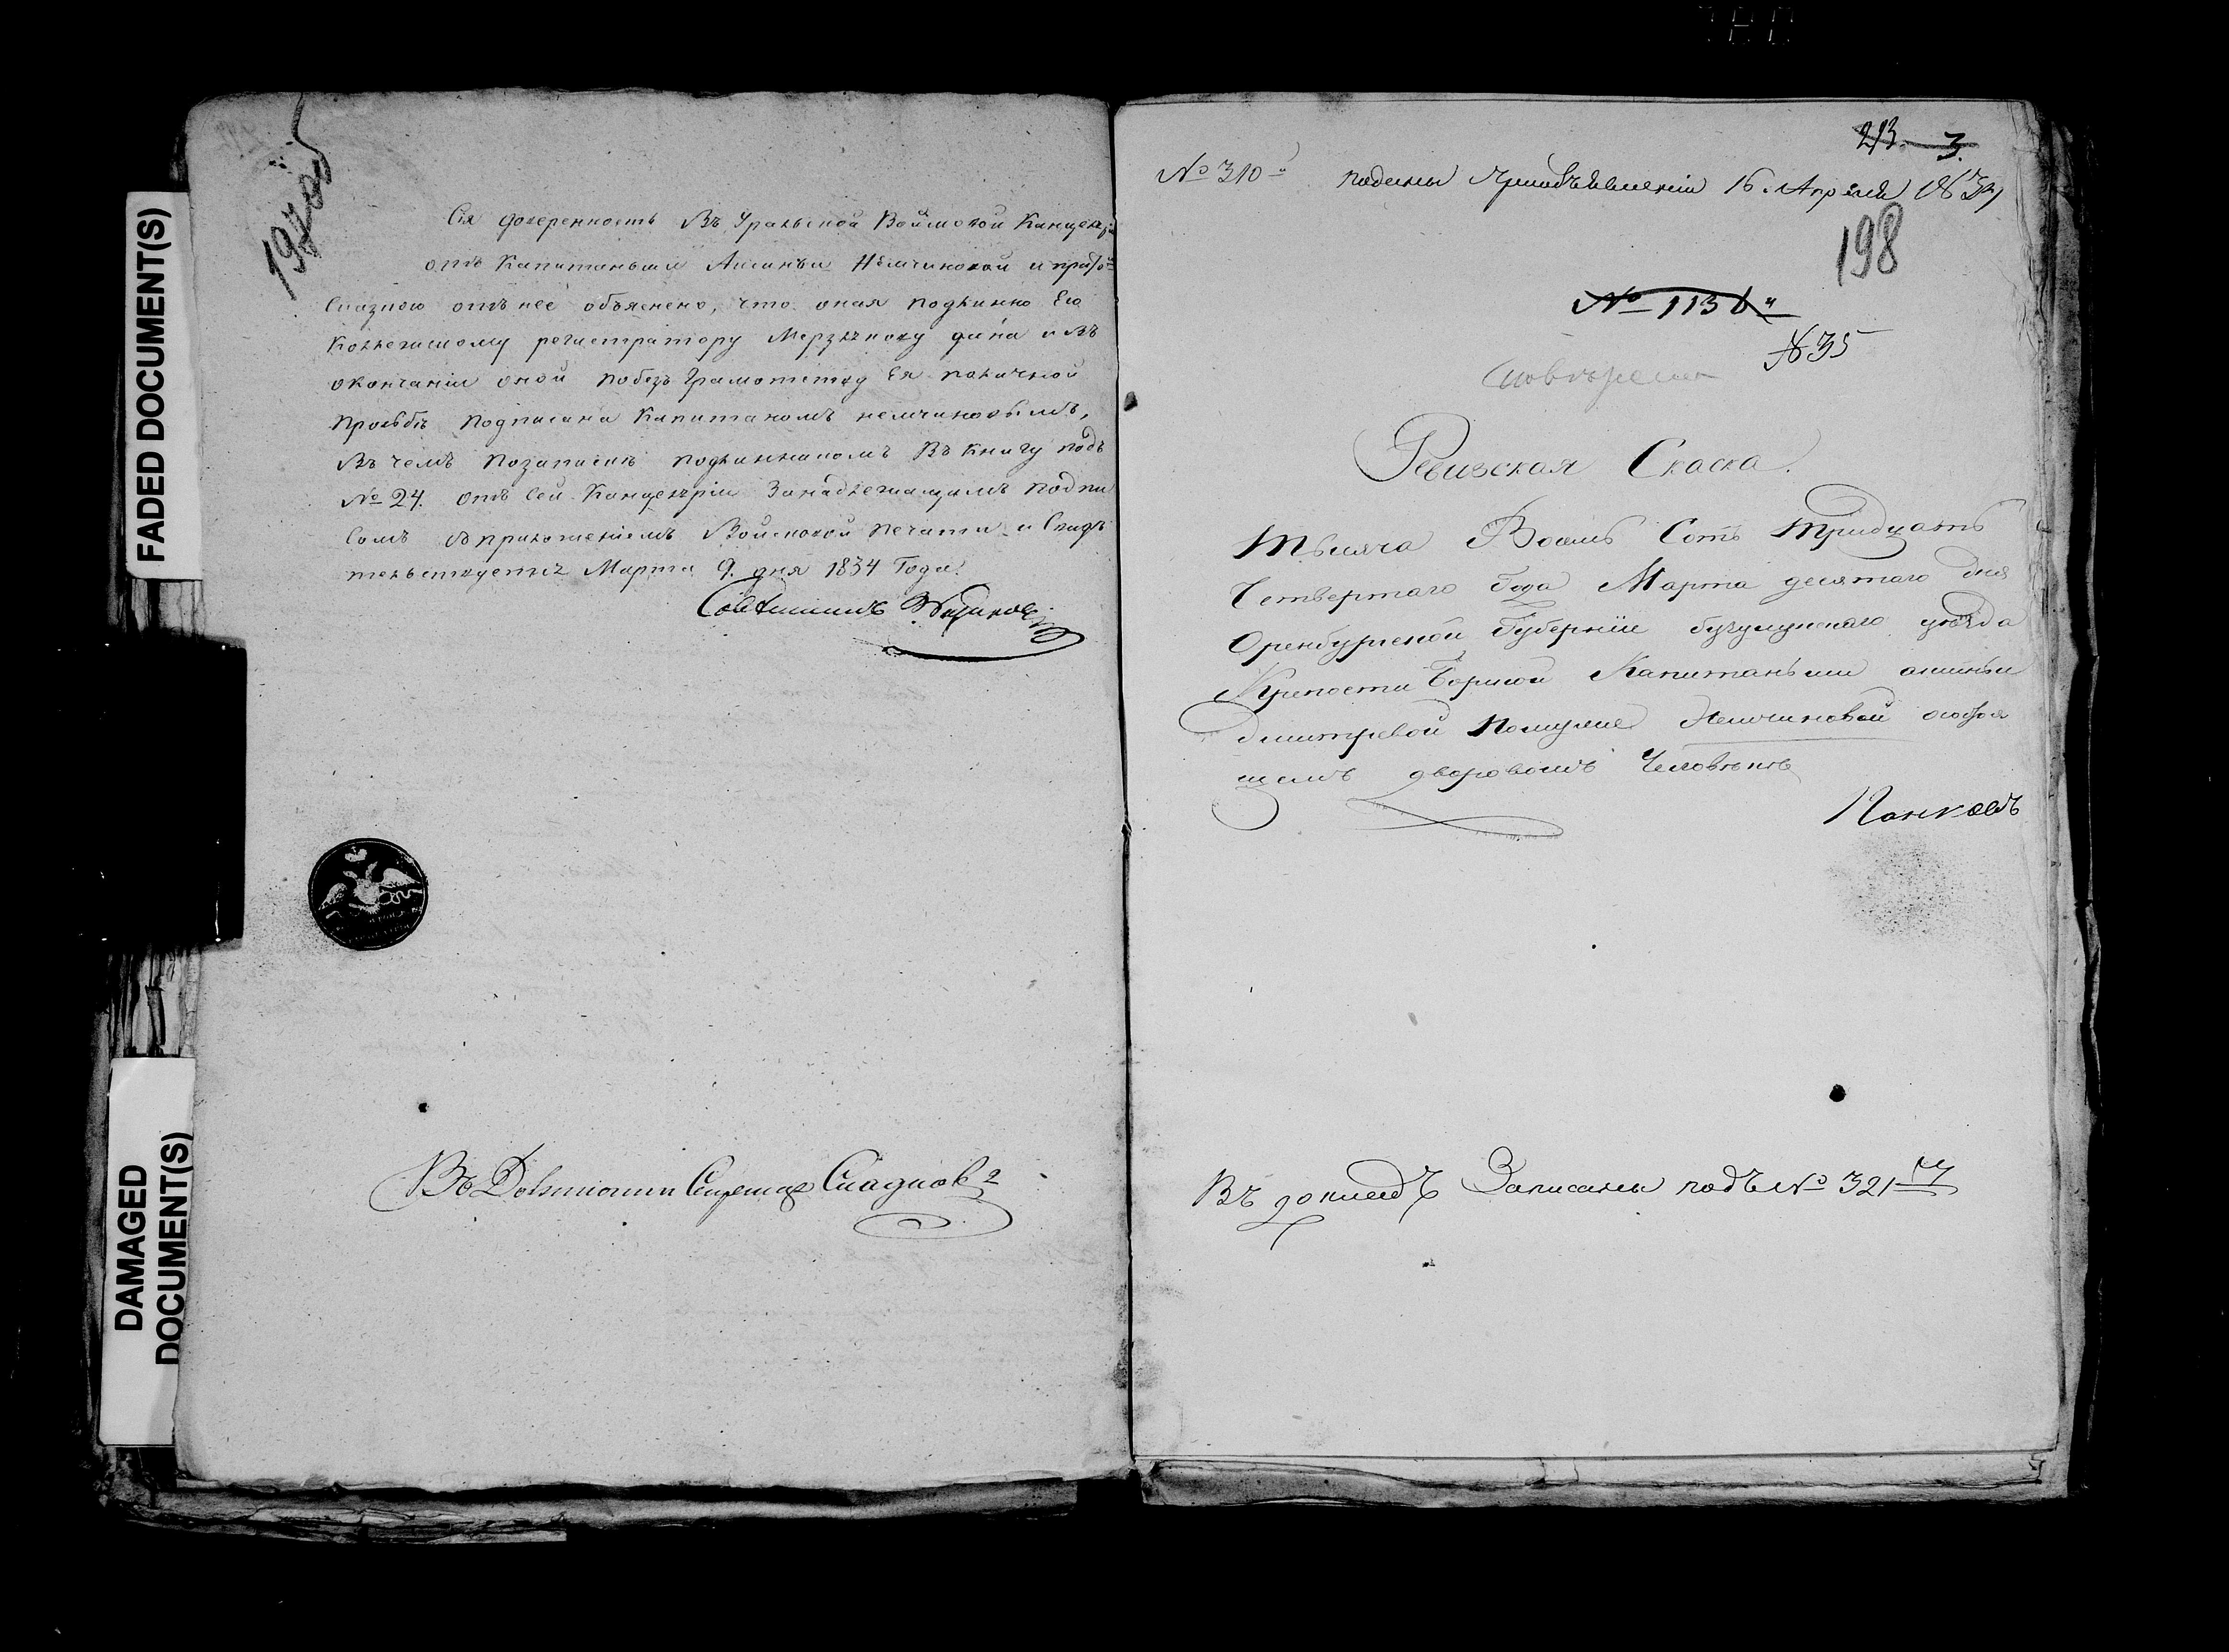 FADED DOCUMENT(S)
DAMAGED
DOCUMENT(S)
Сія доверенность въ Уральской Войсковой Канцеляріи
отъ Капитанши Аксиньи Немчиновой
отъ нее объяснено, что оная подлинно Ею
Коллежскому регистратору Мерзлякову дана и въ
окончаніи оной по безъграмотству Ея по личной
прозьбѣ подписана Капитаномъ Немчиновымъ,
въ чемъ по записке подлинникомъ въ книгу подъ
№ 24. отъ сей Канцелярiи за надлежащимъ подпи
сомъ съ приложениемъ Войсковой печати и Свидѣ
тельствуетъ Марта 9. дня 1834 Года.
Въ Должности Секретаря
213. 3.
№ 310 поданы при объявленіи 16. Апреля 1834
198
№ 1136
№ 35
Ревизская Скаска.
Тысяча Восемь Сотъ Тридцать
Четвертаго Года Марта десятаго дня
Оренбургской Губерніи бугульминскаго уѣзда
Крепости Борской Капитанши аксиньи
дмитревой Немчиновой
щемъ дворовомъ Человѣкѣ
Панковъ
Въ докладъ Записаны подъ № 321